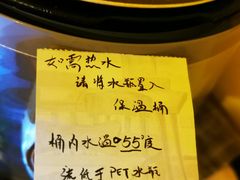 如需热水
请将水瓶置入
保温桶
桶内水温@55度
请低于PET水瓶